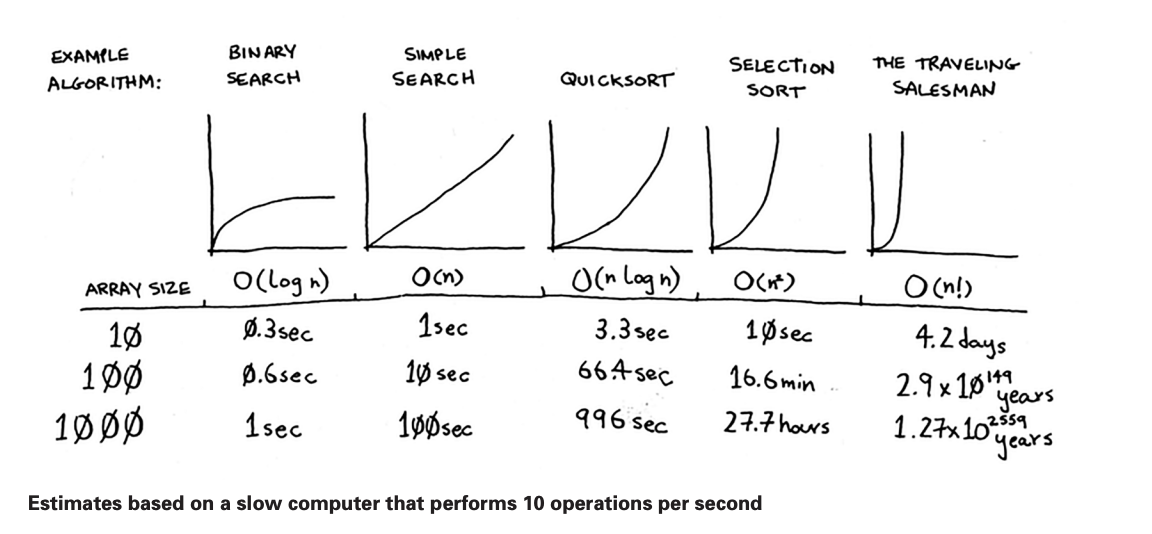 EXAMPLE
ALGORITHM:
BINARY
SEARCH
SIMPLE
SEARCH
QUICKSORT
SELECTION
SORT
THE TRAVELING
SALESMAN
ARRAY SIZE O(log n) O(n) O(n log n) O(n²) O(n!)
10 0.3sec 1sec 3.3sec 10sec 4.2 days
100 0.6sec 10 sec 66.4 sec 16.6 min 2.9 x 10¹⁴⁹ years
1000 1 sec 100sec 996 sec 27.7 hours 1.27x10²⁵⁵⁹ years
Estimates based on a slow computer that performs 10 operations per second